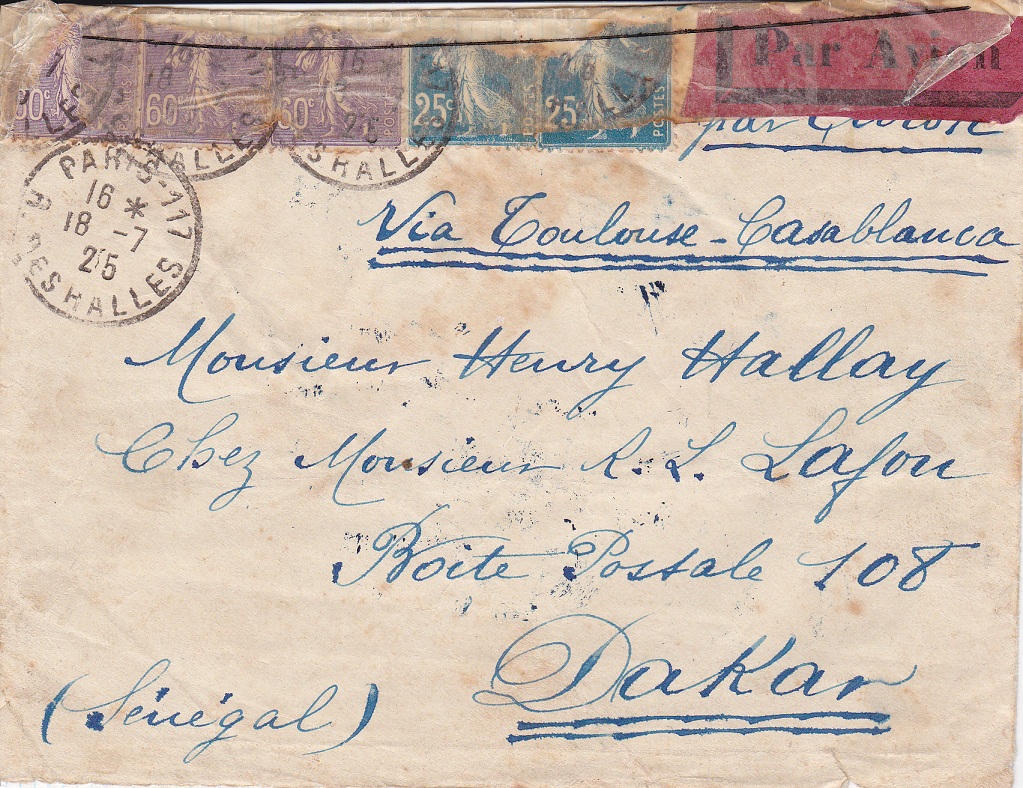 60c 60c 60c 25c 25c
POSTES POSTES
Par Avion
par avion
PARIS-117
16 *
18 -7
25
R. DES HALLES
Via Toulouse-Casablanca
Monsieur Henry Hallay
Chez Monsieur R. L. Lafon
Boite Postale 108
Dakar
(Sénégal)